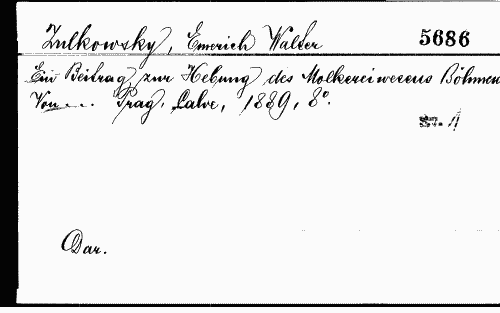 Zulkowsky, Emerich Walter 5686
Ein Beitrag zur Hebung des Molkereiwesens Böhmen
Von ... Prag, Calve, 1889, 8°.
Dar.